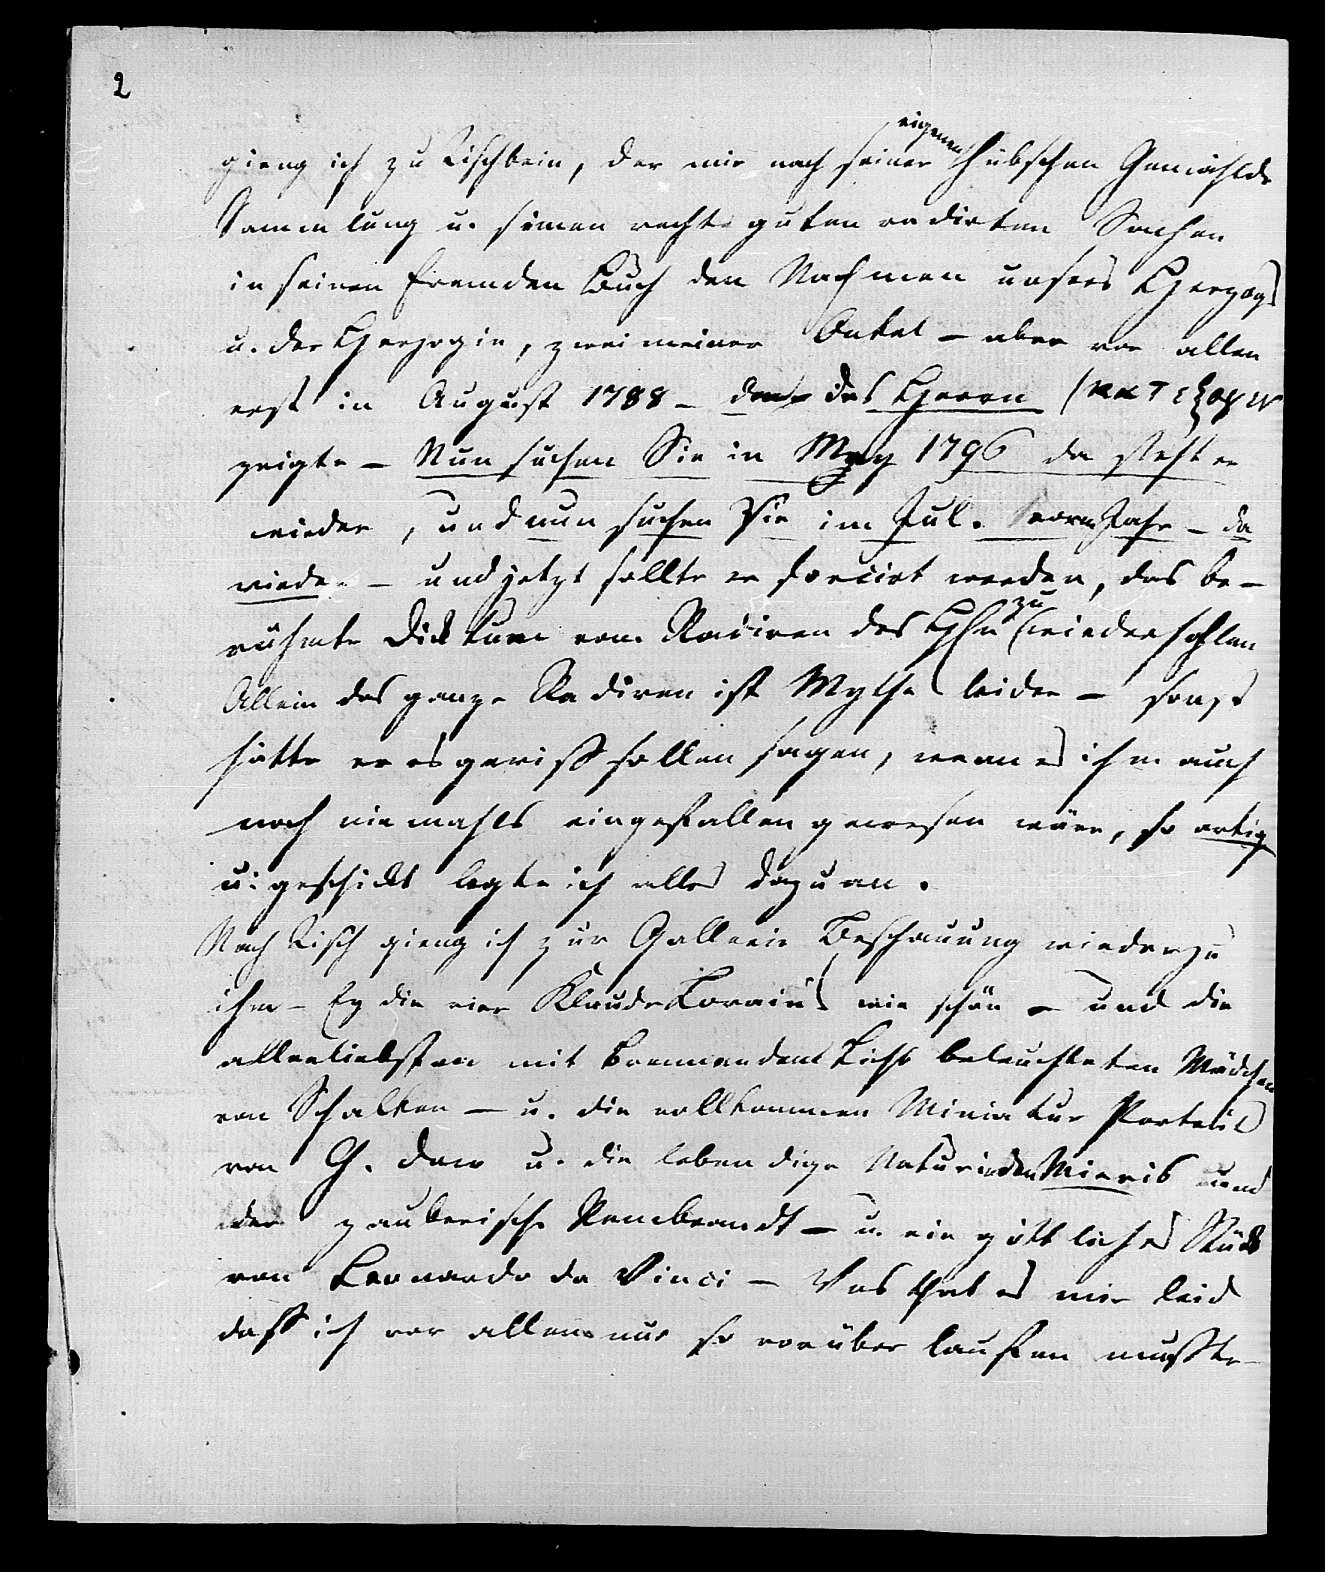 2
gieng ich zu Tischbein, der mir nach seiner eigenen hübschen Gemählde
Sammlung u. seinen recht guten radirten Sachen
in seinen Fremden Buch den Nahmen unsers Herzogs
u. der Herzogin, zwei meiner Onkel – aber vor allen
erst in August 1788 – den des Herrn
zeigte – Nun suchen Sie in May 1796 da steht er
wieder, und nun suchen Sie im Jul. vorm Jahr – da
wieder – und jetzt sollte er forcirt werden, das be–
rühmte Dictum vom Radiren des zu wiederhohlen
Allein das ganze Radiren ist Mythe leider – sonst
hätte er es gewiß sollen sagen, wenn es ihm auch
noch niemahls eingefallen gewesen wäre, so artig
u. geschickt legte ich alles dazu an.
Nach Tisch gieng ich zur Gallerie Beschauung wieder zu
ihm – Ey die vier Klaude Lorains wie schön – und die
allerliebsten mit brennendem Licht beleuchteten Mädchen
von Schalken – u. die vollkommen Miniatur Porträts
von G. Dow u. die lebendige Natur in den Mieris und
der zauberische Rembrandt – u. ein göttliches Stück
von Leonardo da Vinci – Was that es mir leid
daß ich vor allem nur so vorüber laufen mußte –